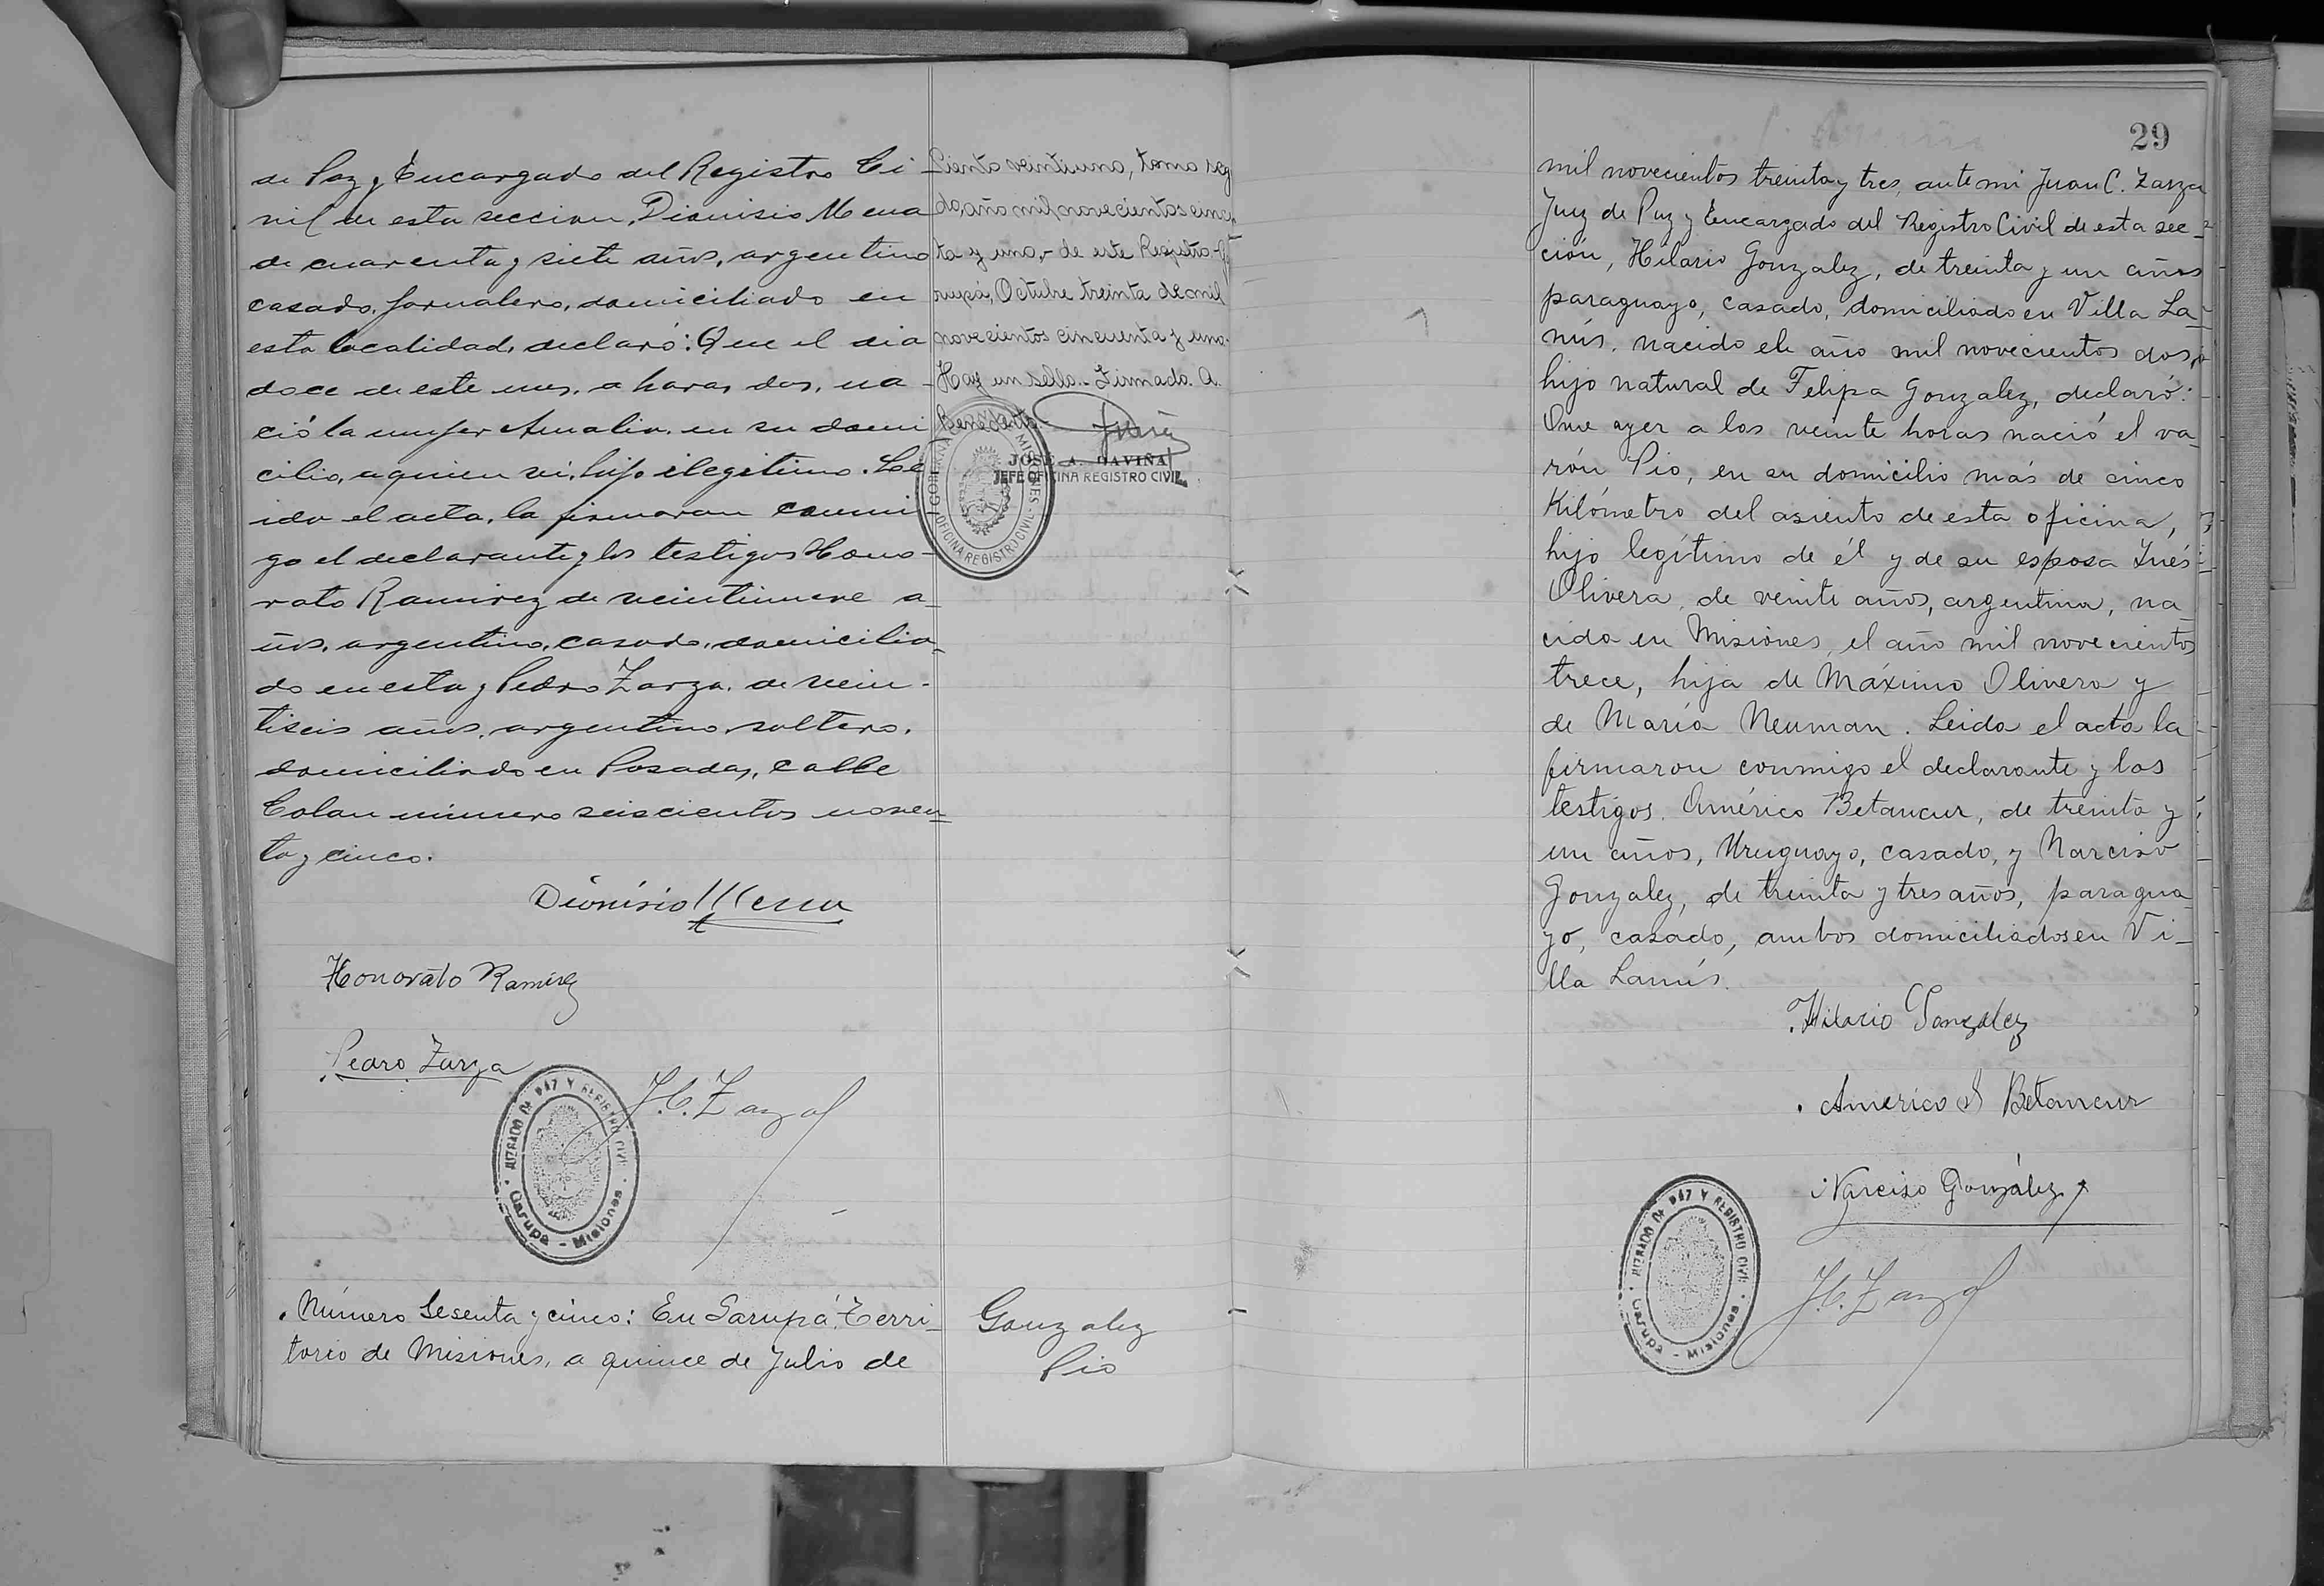 de Paz y Encargado del Registro Ci-
vil de esta seccion, Dionisio Mena
de cuarenta y siete años, argentino
casado, jornalero, domiciliado en
esta localidad, declaró: Que el dia
doce de este mes, a horas dos, na-
ció la mujer Amalia, en su domi
cilio, a quien vi, hijo ilegitimo. Le
ido el acta, la firmaron conmi-
go el declarante y los testigos Hono-
rato Ramirez de veintinueve a-
ños, argentino, casado, domicilia-
do en esta y Pedro Zarza, de vein-
tiseis años, argentino, soltero,
domiciliado en Posadas, calle
Colon número seiscientos noven-
ta y cinco.
Dionisio Mena
Honorato Ramirez
Pedro Zarza
J. C. Zarza
JUZGADO DE PAZ Y REGISTRO CIVIL
Garupá - Misiones
Número Sesenta y cinco: En Garupá, Terri-
torio de Misiones, a quince de Julio de
Ciento veintiuno, tomo seg
do, año mil novecientos cincu
ta y uno,- de este Registro-
rupá, Octubre treinta de mil
novecientos cincuenta y uno.
Hay un sello.- Firmado. A.
JOSÉ A. GAVIÑA
JEFE OFICINA REGISTRO CIVIL
OFICINA REGISTRO CIVIL
Gonzalez
Pio
29
mil novecientos treinta y tres, ante mi Juan C. Zarza
Juez de Paz y Encargado del Registro Civil de esta sec-
ción, Hilario Gonzalez, de treinta y un años
paraguayo, casado, domiciliado en Villa La-
nús, nacido el año mil novecientos dos,
hijo natural de Felipa Gonzalez, declaró:
Que ayer a los veinte horas nació el va-
rón Pio, en su domicilio más de cinco
Kilómetro del asiento de esta oficina,
hijo legítimo de él y de su esposa Inés
Olivera, de veinte años, argentina, na
cida en Misiones, el año mil novecientos
trece, hija de Máximo Olivera y
de María Neuman. Leida el acta la
firmaron conmigo el declarante y los
testigos. Américo Betancur, de treinta y
un años, Uruguayo, casado, y Narciso
Gonzalez, de treinta y tres años, paragua-
yo, casado, ambos domiciliados en Vi-
lla Lanús.
Hilario Gonzalez
Americo S Betancur
Narciso González
J. C. Zarza
JUZGADO DE PAZ Y REGISTRO CIVIL
Garupá - Misiones